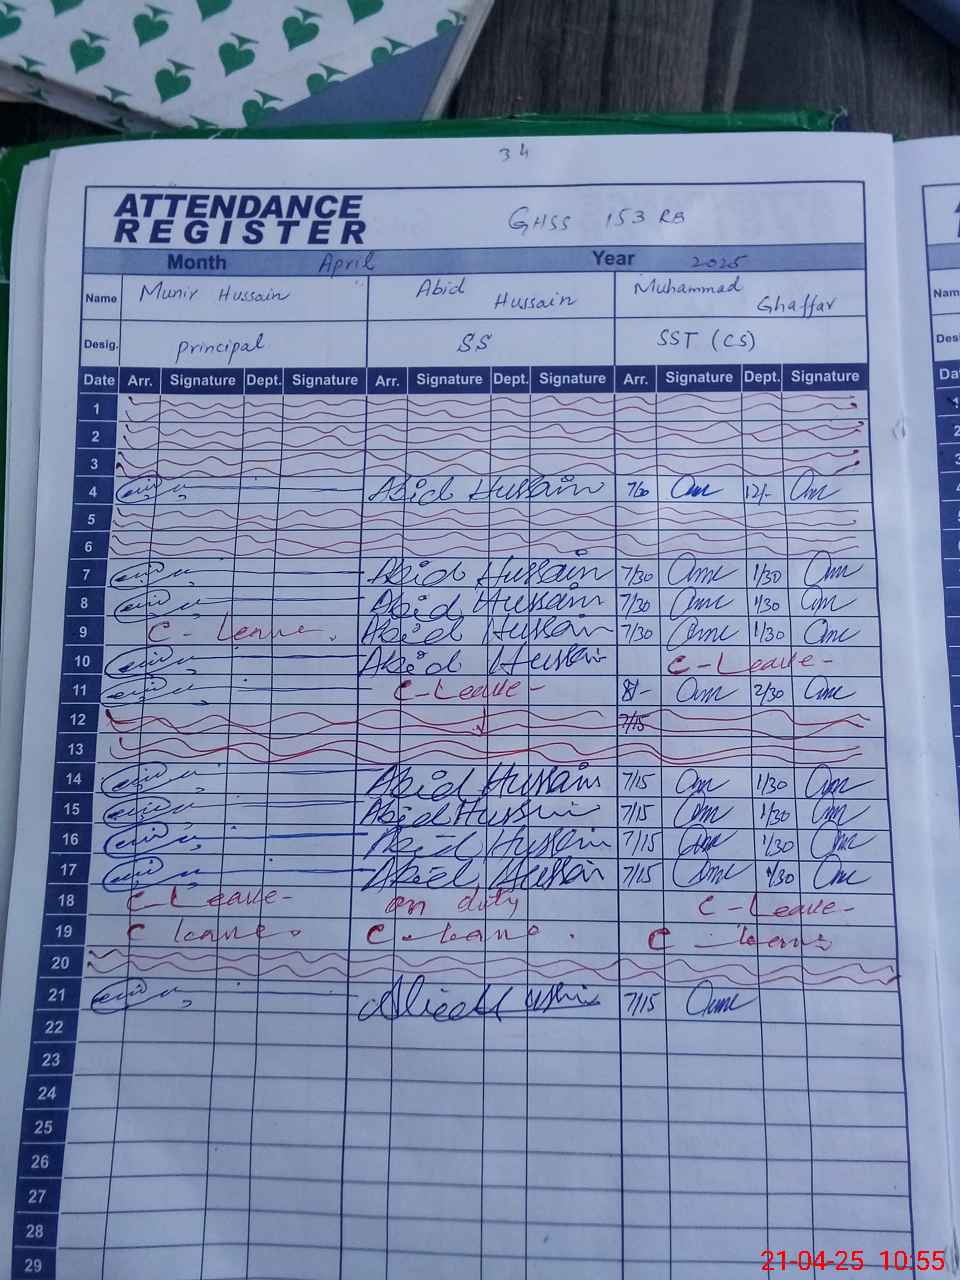 34
ATTENDANCE
REGISTER
GHSS 153 RB
Month April Year 2025
Name Munir Hussain Abid Hussain Muhammad Ghaffar
Desig. Principal SS SST (CS)
Date Arr. Signature Dept. Signature Arr. Signature Dept. Signature Arr. Signature Dept. Signature
1
2
3
4 Abid Hussain 12/-
5
6
7 Abid Hussain 7/30 1/30
8 Abid Hussain 7/30 1/30
9 C-Leave. Abid Hussain 7/30 1/30
10 Abid Hussain C-Leave-
11 C-Leave- 8/- 2/30
12 7/15
13
14 Abid Hussain 7/15 1/30
15 Abid Hussain 7/15 1/30
16 Abid Hussain 7/15 1/30
17 Abid Hussain 7/15 1/30
18 C-Leave- on duty C-Leave-
19 C leave. C-leave. C-leave
20
21 7/15
22
23
24
25
26
27
28
29
21-04-25 10:55